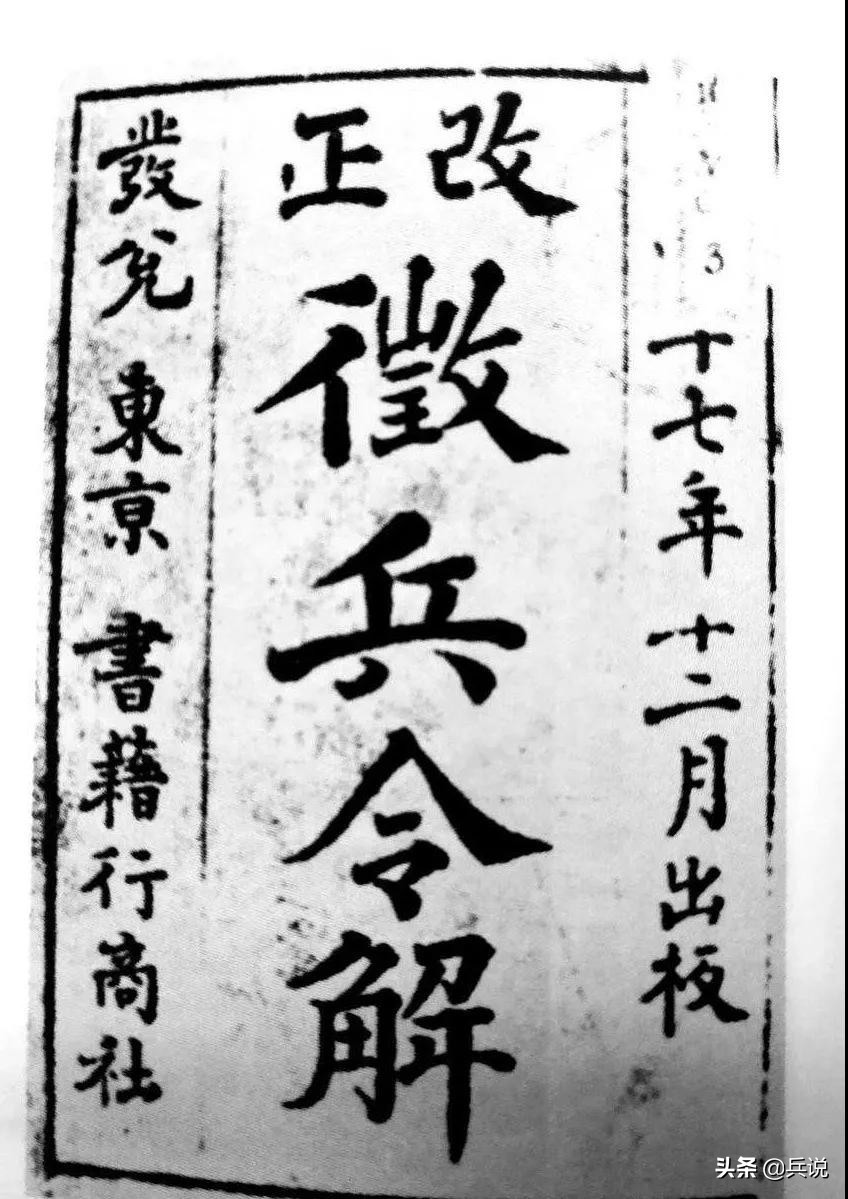 十七年十二月出板
改正
徵兵令解
發兌 東京 書籍行商社
头条 @兵说